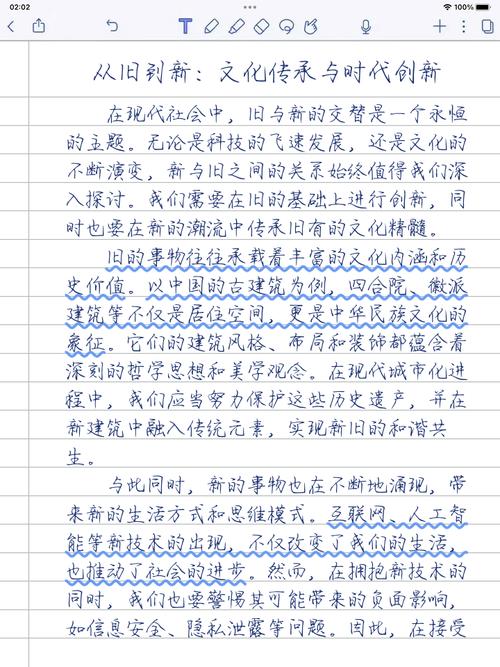 02:02
100%
从旧到新：文化传承与时代创新
在现代社会中，旧与新的交替是一个永恒
的主题。无论是科技的飞速发展，还是文化的
不断演变，新与旧之间的关系始终值得我们深
入探讨。我们需要在旧的基础上进行创新，同
时也要在新的潮流中传承旧有的文化精髓。
旧的事物往往承载着丰富的文化内涵和历
史价值。以中国的古建筑为例，四合院、徽派
建筑等不仅是居住空间，更是中华民族文化的
象征。它们的建筑风格、布局和装饰都蕴含着
深刻的哲学思想和美学观念。在现代城市化进
程中，我们应当努力保护这些历史遗产，并在
新建筑中融入传统元素，实现新旧的和谐共
生。
与此同时，新的事物也在不断地涌现，带
来新的生活方式和思维模式。互联网、人工智
能等新技术的出现，不仅改变了我们的生活，
也推动了社会的进步。然而，在拥抱新技术的
同时，我们也要警惕其可能带来的负面影响，
如信息安全、隐私泄露等问题。因此，在接受